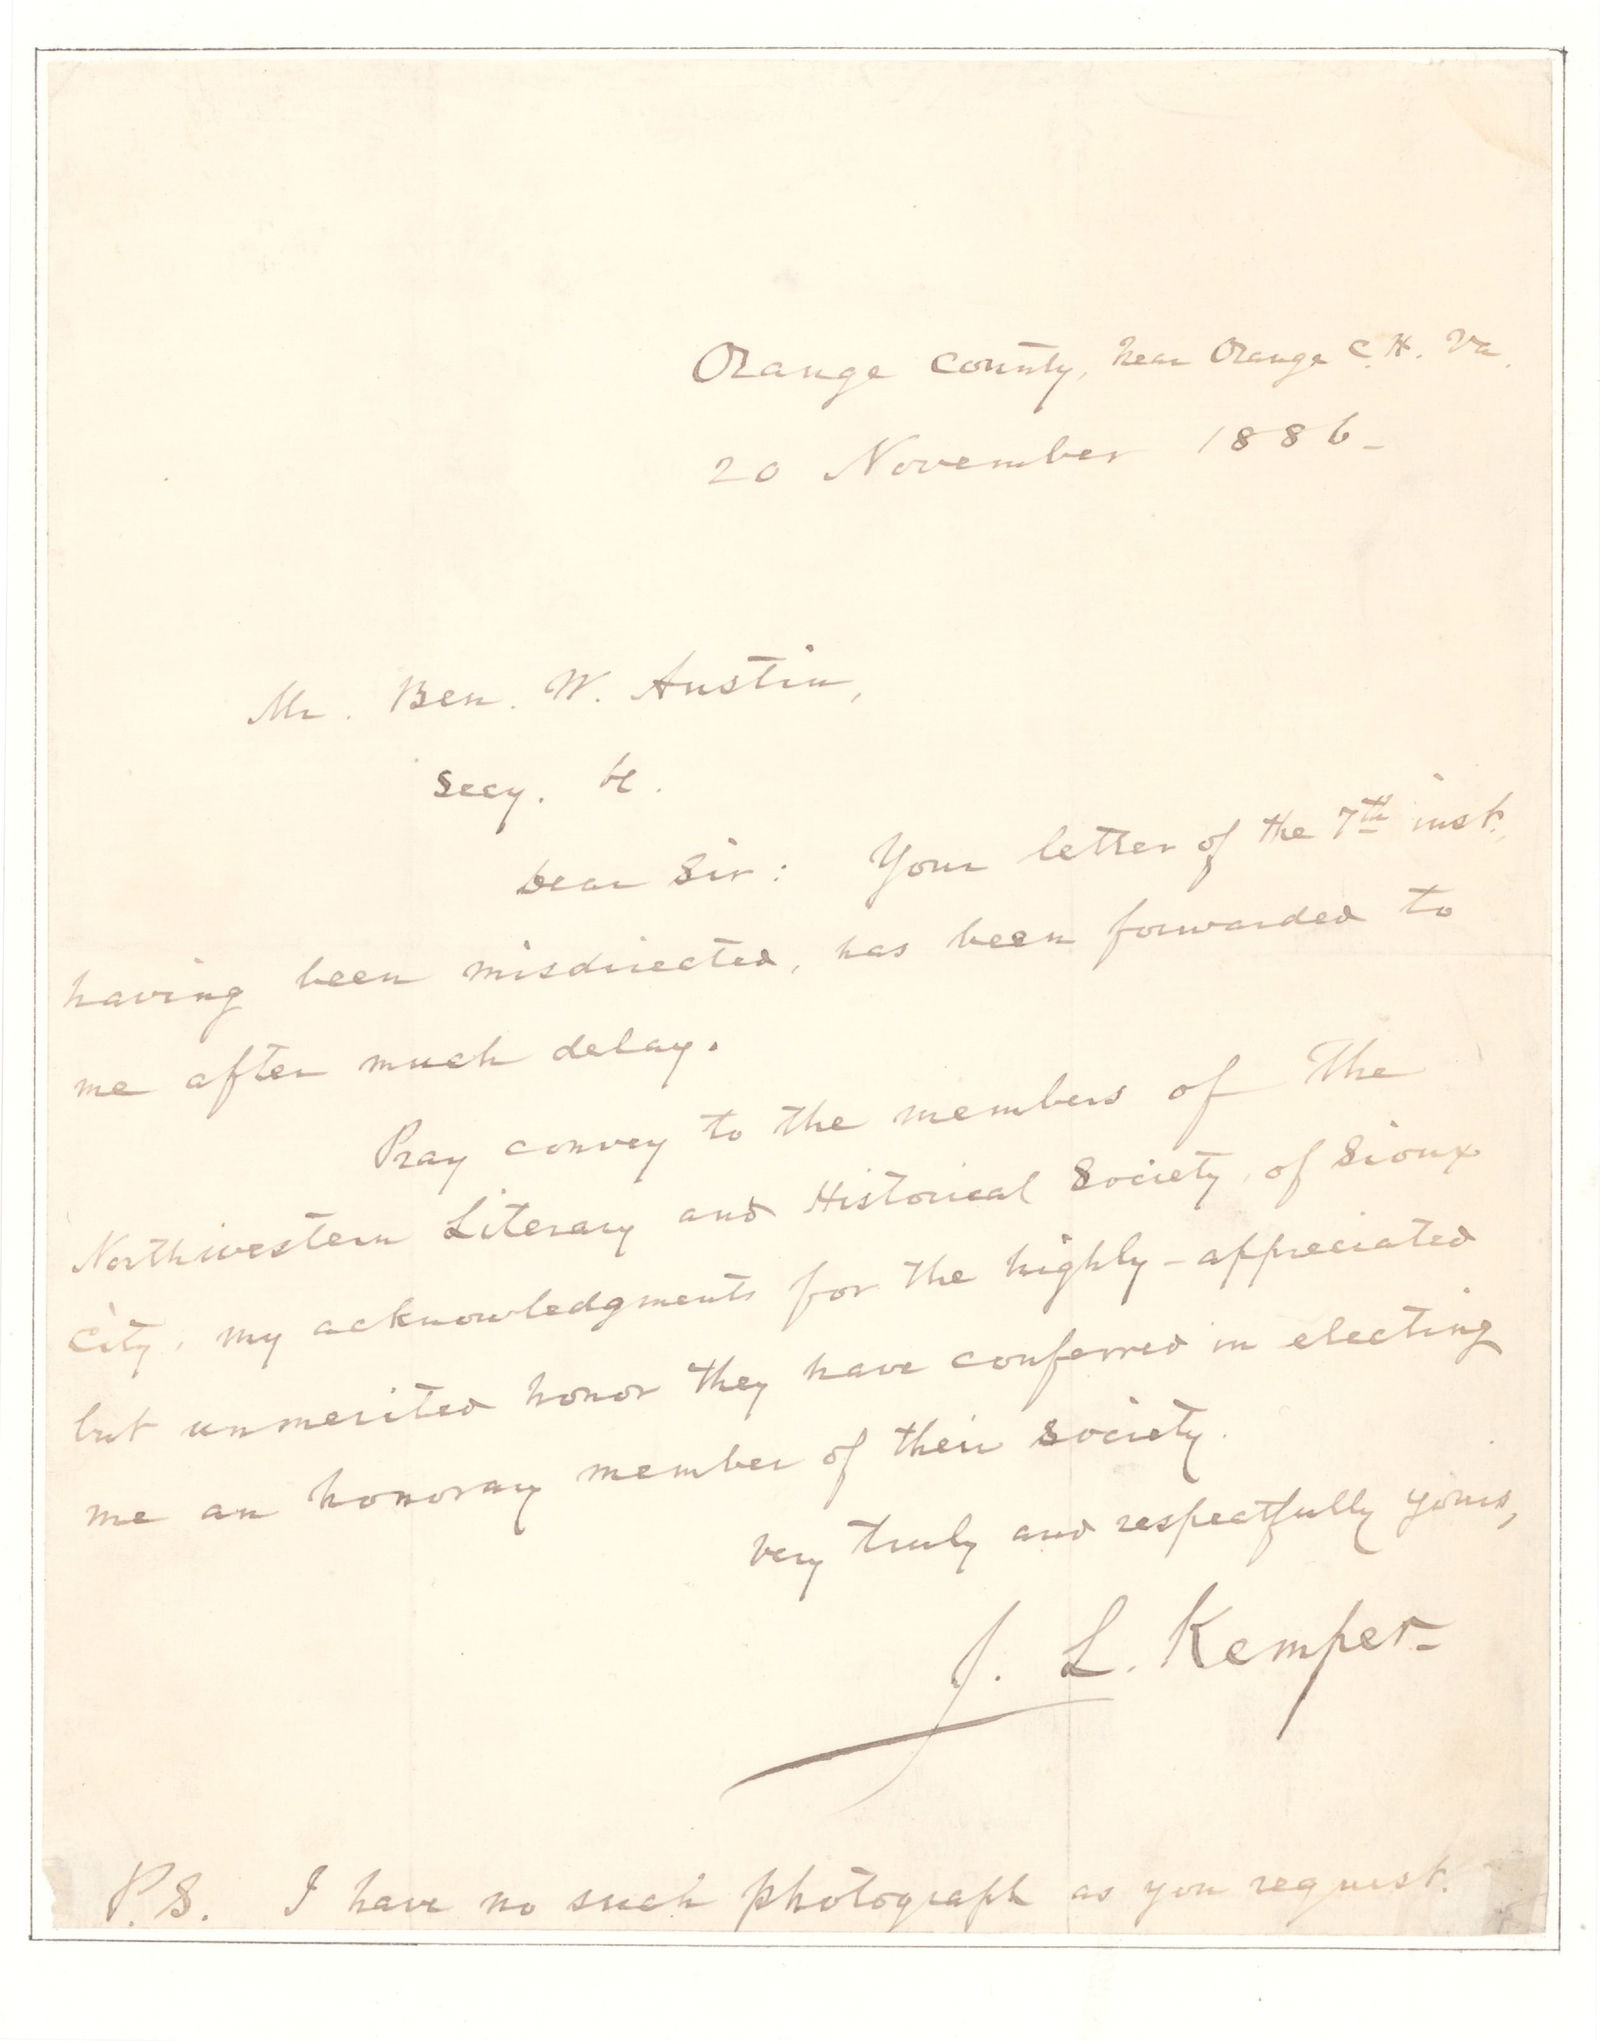 Orange County, near Orange C. H. Va.
20 November 1886_
Mr. Ben. W. Austin,
Secy. &c.
Dear Sir: Your letter of the 7th inst.,
having been misdirected, has been forwarded to
me after much delay.
Pray convey to the members of The
Northwestern Literary and Historical Society, of Sioux
City, my acknowledgments for the highly-appreciated
but unmerited honor they have conferred in electing
me an honorary member of their society.
Very truly and respectfully yours,
J. L. Kemper_
P.S. I have no such photograph as you request.